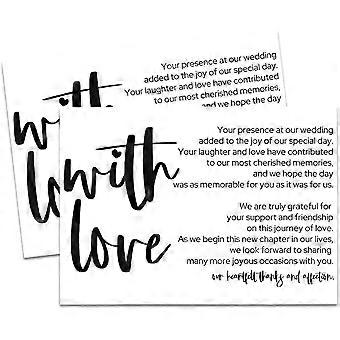 Your presence at our wedding
added to the joy of our special day.
Your laughter and love have contributed
to our most cherished memories,
and we hope the day
with
lo
with
love
Your presence at our wedding
added to the joy of our special day.
Your laughter and love have contributed
to our most cherished memories,
and we hope the day
was as memorable for you as it was for us.
We are truly grateful for
your support and friendship
on this journey of love.
As we begin this new chapter in our lives,
we look forward to sharing
many more joyous occasions with you.
our heartfelt thanks and affection,